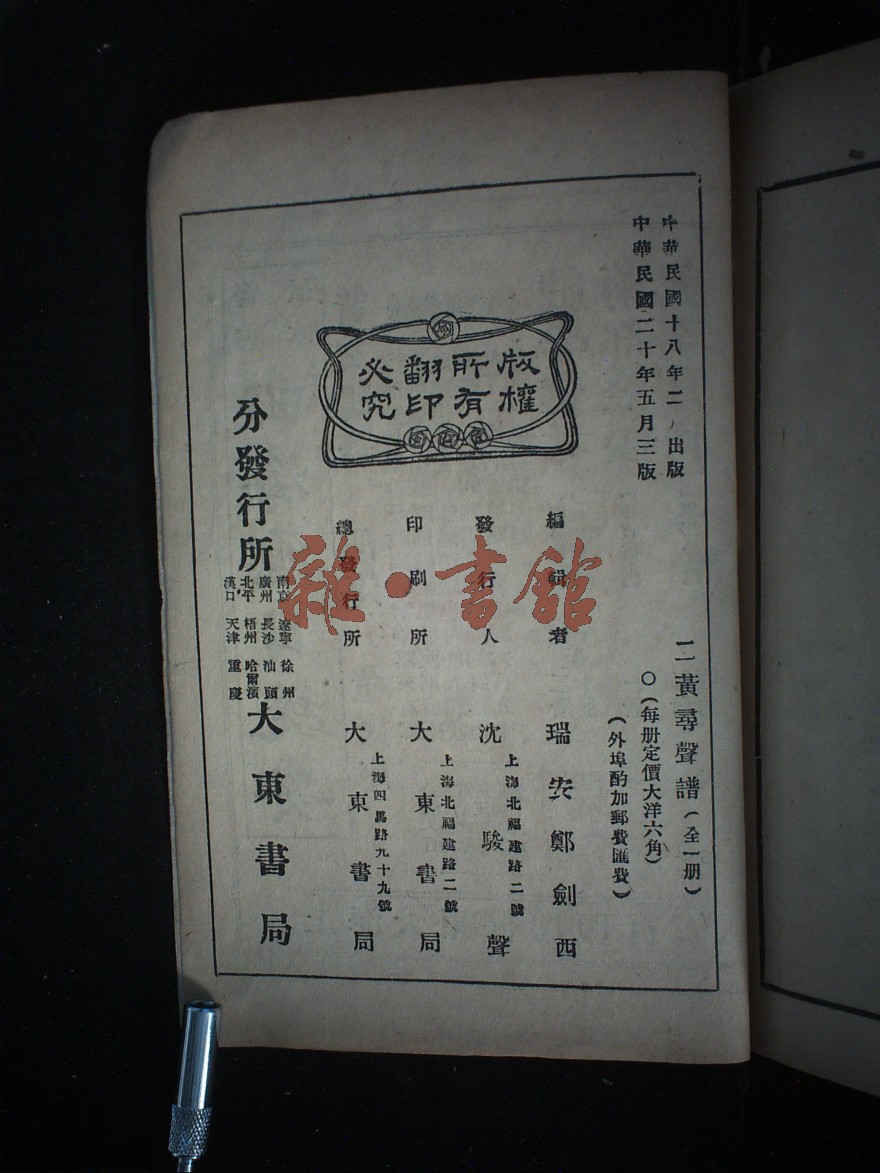 中華民國十八年二月出版
中華民國二十年五月三版
版權
所有
翻印
必究
二黃尋聲譜（全一册）
〇（每册定價大洋六角）
（外埠酌加郵費匯費）
編輯者 瑞安鄭劍西
發行人 沈駿聲
上海北福建路二號
印刷所 大東書局
上海北福建路二號
總發行所 大東書局
上海四馬路九十九號
分發行所
南京 遼寧 徐州
廣州 長沙 汕頭
北平 梧州 哈爾濱
漢口 天津 重慶
大東書局
雜·書館